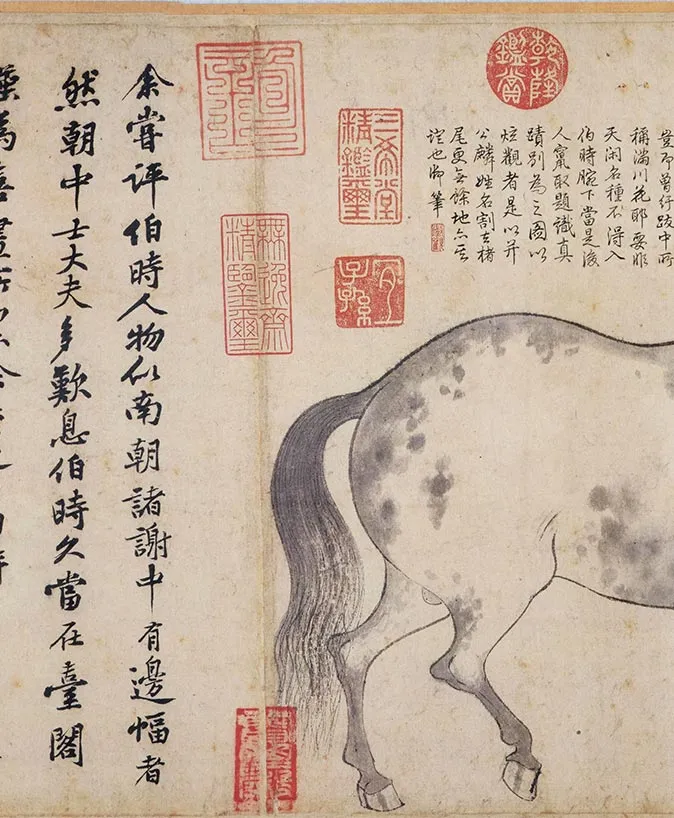 乾隆鑑賞
豈即曾行跋中所
稱滿川花耶要非
天閑名種不得入
伯時腕下當是後
人竄取題識真
蹟別為之圖以
炫觀者是以并
公麟姓名割去楮
尾更無餘地亦
也御筆
三希堂精鑑璽
宜子孫
無逸齋精鑒璽
余嘗評伯時人物似南朝諸謝中有邊幅者
然朝中士大夫多歎息伯時久當在臺閣
為善畫所